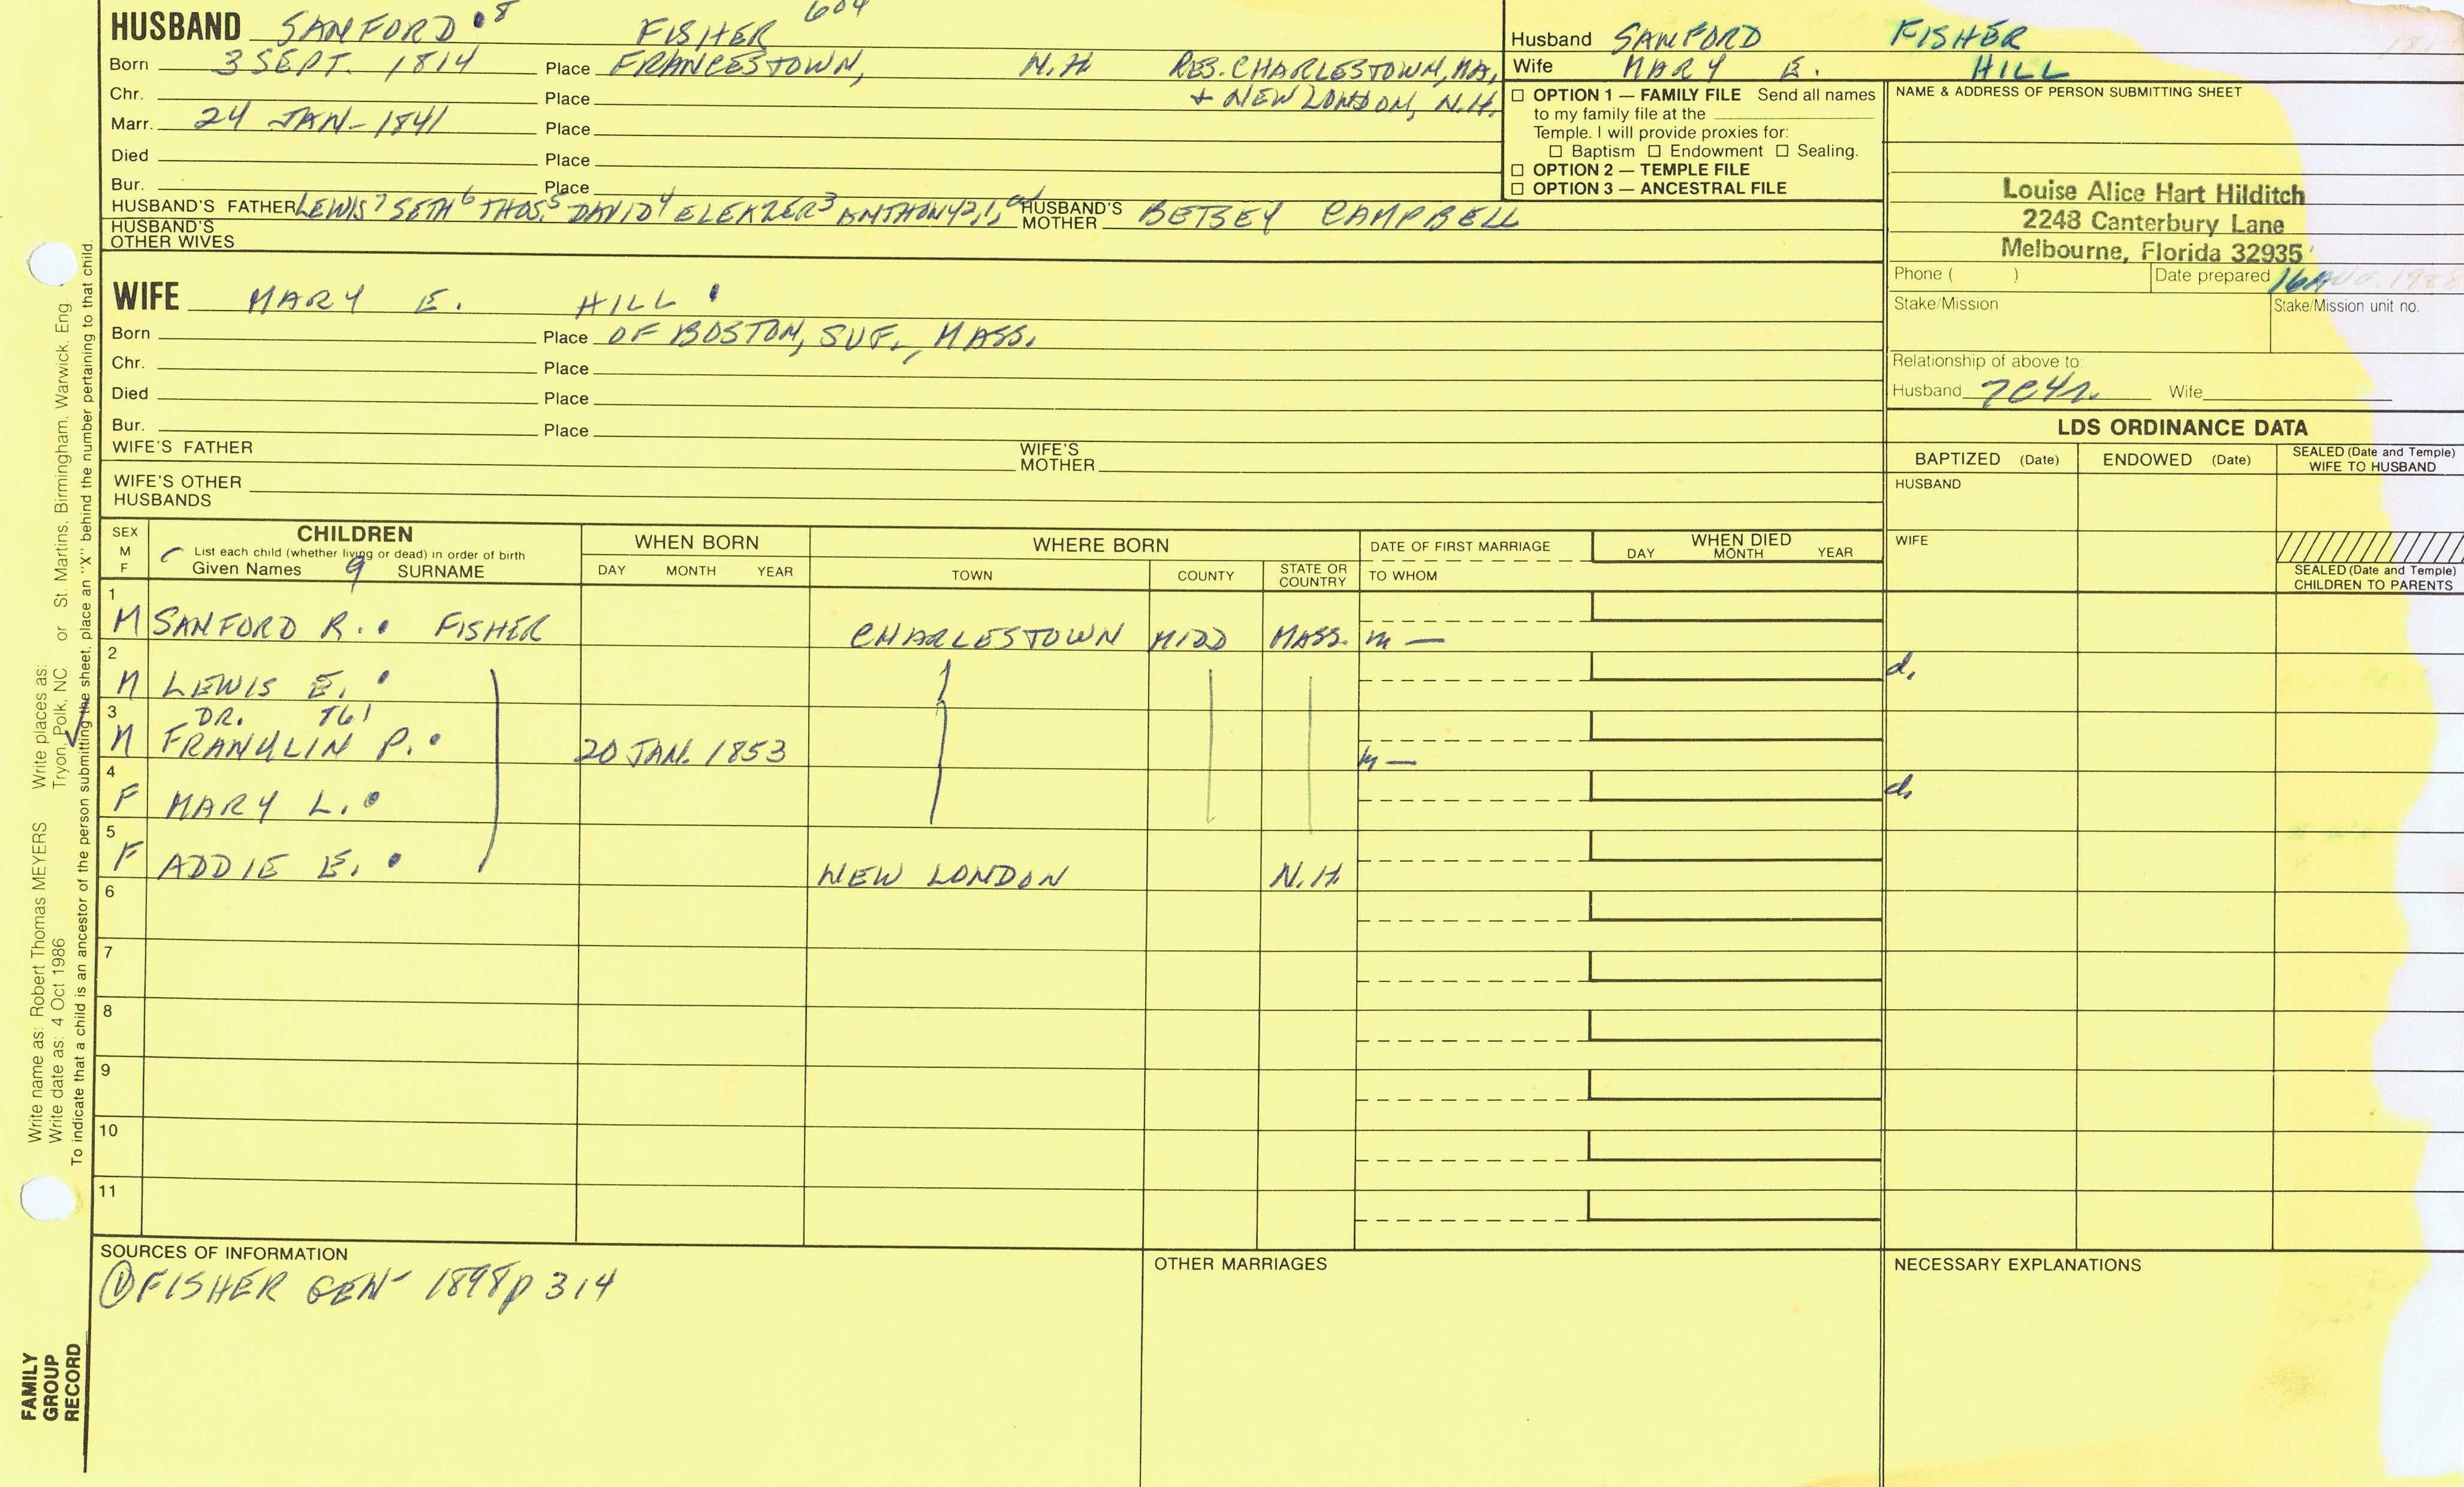 HUSBAND SANFORD 8 FISHER 604
Born 3 SEPT. 1814 Place FRANCESTOWN, N.H. RES. CHARLESTOWN, MA,
Chr. Place + NEW LONDON, N.H.
Marr. 24 JAN- 1841 Place
Died Place
Bur. Place
HUSBAND'S FATHER LEWIS7 SETH6 THOS.5 DAVID4 ELEAZER3 ANTHONY2,1, HUSBAND'S MOTHER BETSEY CAMPBELL
HUSBAND'S OTHER WIVES
Husband SANFORD FISHER
Wife MARY E. HILL
☐ OPTION 1 — FAMILY FILE Send all names
to my family file at the
Temple. I will provide proxies for:
☐ Baptism ☐ Endowment ☐ Sealing.
☐ OPTION 2 — TEMPLE FILE
☐ OPTION 3 — ANCESTRAL FILE
NAME & ADDRESS OF PERSON SUBMITTING SHEET
Louise Alice Hart Hilditch
2248 Canterbury Lane
Melbourne, Florida 32935
Phone ( ) Date prepared 16 AUG. 1988
Stake/Mission Stake/Mission unit no.
Relationship of above to:
Husband 7C4r. Wife
WIFE MARY E. HILL
Born Place OF BOSTON, SUF., MASS.
Chr. Place
Died Place
Bur. Place
WIFE'S FATHER WIFE'S MOTHER
WIFE'S OTHER HUSBANDS
LDS ORDINANCE DATA
BAPTIZED (Date) ENDOWED (Date) SEALED (Date and Temple) WIFE TO HUSBAND
HUSBAND
WIFE
SEALED (Date and Temple) CHILDREN TO PARENTS
SEX M F
CHILDREN
List each child (whether living or dead) in order of birth
Given Names 9 SURNAME
WHEN BORN
DAY MONTH YEAR
WHERE BORN
TOWN COUNTY STATE OR COUNTRY
DATE OF FIRST MARRIAGE
TO WHOM
WHEN DIED
DAY MONTH YEAR
1
M SANFORD R. FISHER CHARLESTOWN MIDD MASS. m —
2
M LEWIS E. d.
3 DR. 761
M FRANKLIN P. 20 JAN. 1853 m —
4
F MARY L. d.
5
F ADDIE E. NEW LONDON N.H.
6
7
8
9
10
11
SOURCES OF INFORMATION
① FISHER GEN- 1898 p 314
OTHER MARRIAGES
NECESSARY EXPLANATIONS
Write name as: Robert Thomas MEYERS Write places as: Tryon, Polk, NC or St. Martins, Birmingham, Warwick, Eng
Write date as: 4 Oct 1986
To indicate that a child is an ancestor of the person submitting the sheet, place an "X" behind the number pertaining to that child.
FAMILY
GROUP
RECORD